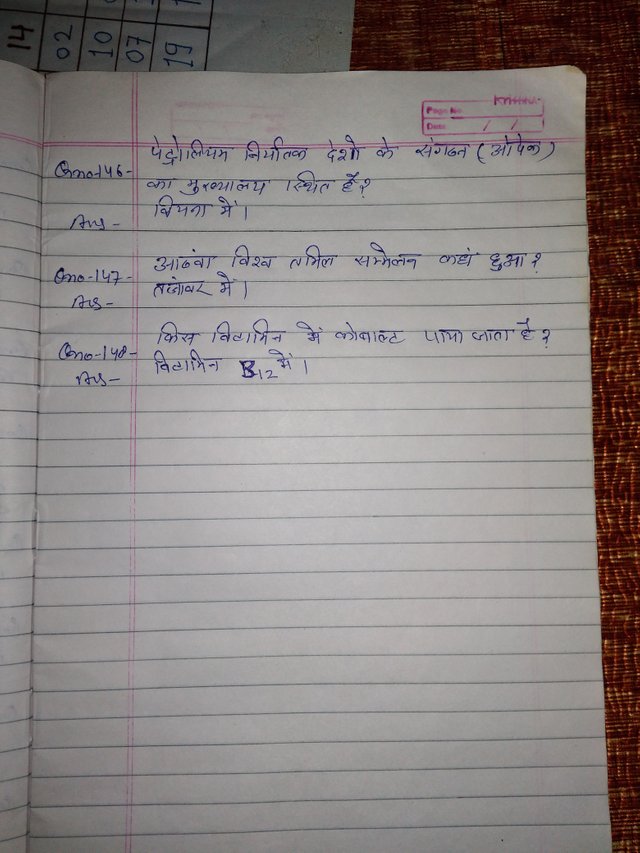 14
02
10
07
19
Page No.
Date / /
Qno-146- पेट्रोलियम निर्यातक देशों के संगठन (ओपेक)
का मुख्यालय स्थित है?
Ans- वियना में।
Qno-147- आठवां विश्व तमिल सम्मेलन कहां हुआ?
Ans- तंजावर में।
Qno-148- किस विटामिन में कोबाल्ट पाया जाता है?
Ans- विटामिन B12 में।